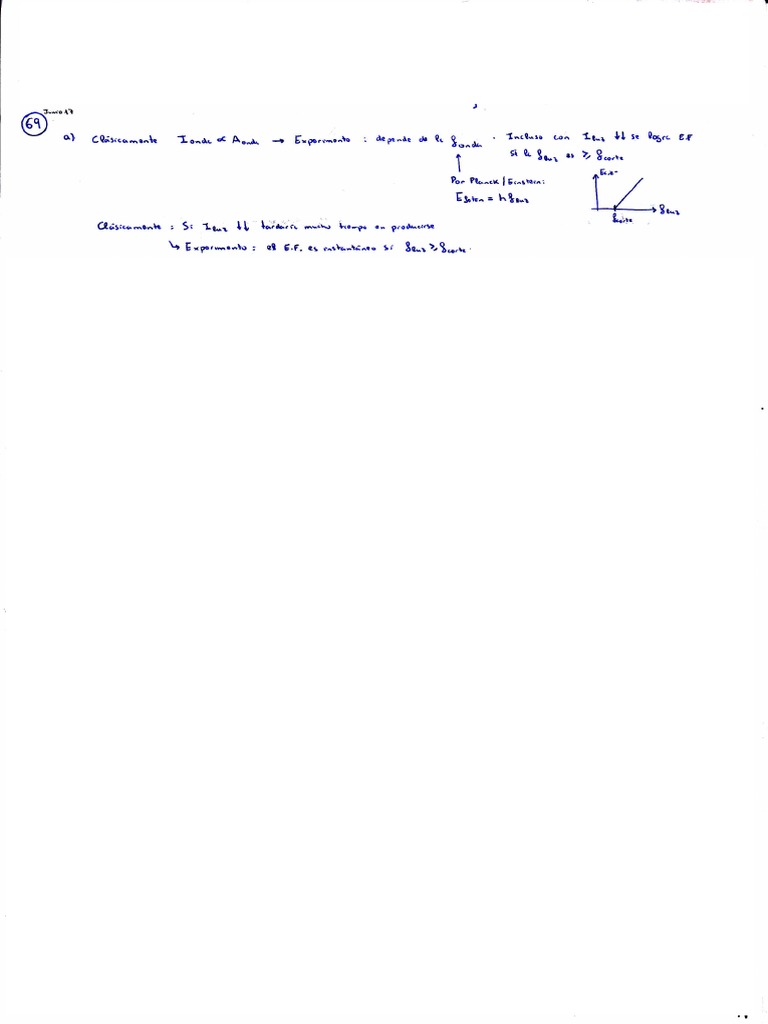 Junio 17
69
a) Clásicamente I onda ∝ A onda → Experimento : depende de la f onda . Incluso con I luz ↓↓ se logra EF
si la f luz es ≥ f corte
Por Planck / Einstein:
E foton = h f luz
Ec e-
f luz
f corte
Clásicamente : Si I luz ↓↓ tardaría mucho tiempo en producirse
↳ Experimento : el E.F. es instantáneo si f luz ≥ f corte.